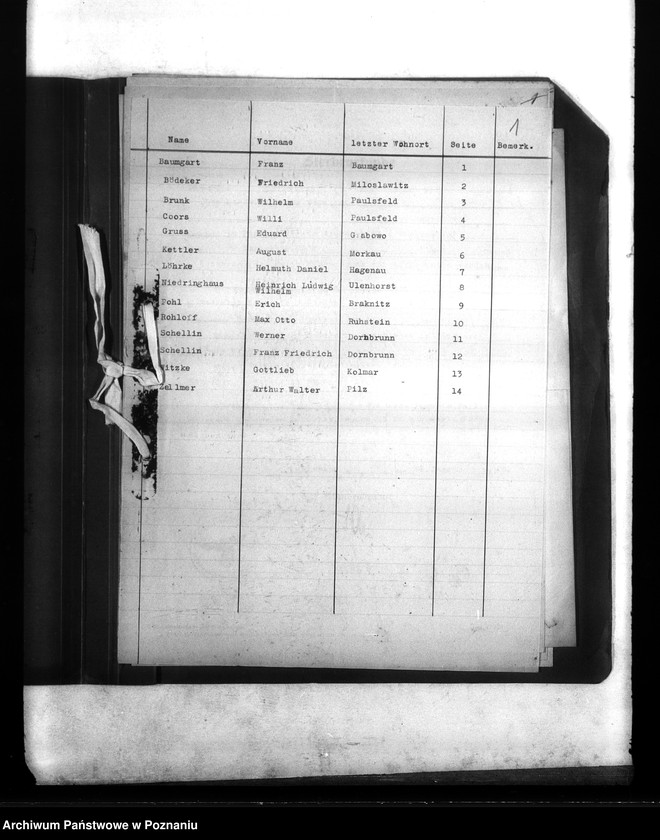 1
Name Vorname letzter Wohnort Seite Bemerk.
Baumgart Franz Baumgart 1
Bödeker Friedrich Miloslawitz 2
Brunk Wilhelm Paulsfeld 3
Coors Willi Paulsfeld 4
Gruss Eduard Grabowo 5
Kettler August Morkau 6
Löhrke Helmuth Daniel Hagenau 7
Niedringhaus Heinrich Ludwig Ulenhorst 8
Wilhelm
Pohl Erich Braknitz 9
Rohloff Max Otto Ruhstein 10
Schellin Werner Dornbrunn 11
Schellin Franz Friedrich Dornbrunn 12
Witzke Gottlieb Kolmar 13
Zellmer Arthur Walter Pilz 14
Archiwum Państwowe w Poznaniu